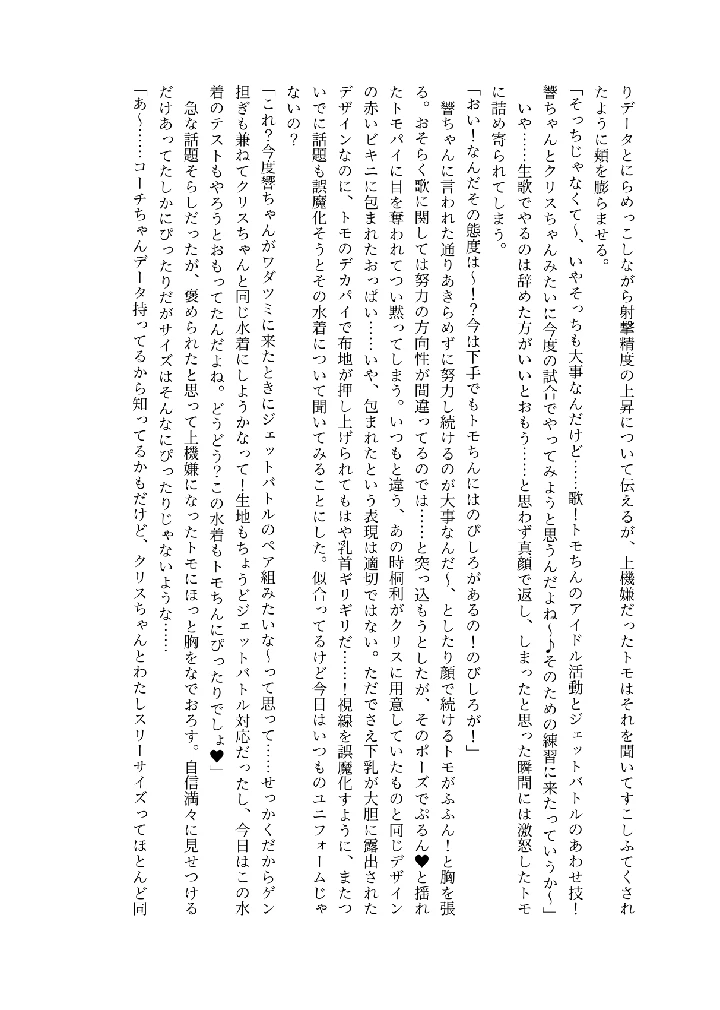 りデータとにらめっこしながら射撃精度の上昇について伝えるが、上機嫌だったトモはそれを聞いてすこしふてくされ
たように頬を膨らませる。
「そっちじゃなくて～、いやそっちも大事なんだけど……歌！トモちんのアイドル活動とジェットバトルのあわせ技！
響ちゃんとクリスちゃんみたいに今度の試合でやってみようと思うんだよね～♪そのための練習に来たっていうか～」
　いや……生歌でやるのは辞めた方がいいとおもう……と思わず真顔で返し、しまったと思った瞬間には激怒したトモ
に詰め寄られてしまう。
「おい！なんだその態度は～！？今は下手でもトモちんにはのびしろがあるの！のびしろが！」
　響ちゃんに言われた通りあきらめずに努力し続けるのが大事なんだ～、としたり顔で続けるトモがふふん！と胸を張
る。おそらく歌に関しては努力の方向性が間違ってるのでは……と突っ込もうとしたが、そのポーズでぷるん♥と揺れ
たトモパイに目を奪われてつい黙ってしまう。いつもと違う、あの時桐利がクリスに用意していたものと同じデザイン
の赤いビキニに包まれたおっぱい……いや、包まれたという表現は適切ではない。ただでさえ下乳が大胆に露出された
デザインなのに、トモのデカパイで布地が押し上げられてもはや乳首ギリギリだ……！視線を誤魔化すように、またつ
いでに話題も誤魔化そうとその水着について聞いてみることにした。似合ってるけど今日はいつものユニフォームじゃ
ないの？
「これ？今度響ちゃんがワダツミに来たときにジェットバトルのペア組みたいな～って思って……せっかくだからゲン
担ぎも兼ねてクリスちゃんと同じ水着にしようかなって！生地もちょうどジェットバトル対応だったし、今日はこの水
着のテストもやろうとおもってたんだよね。どうどう？この水着もトモちんにぴったりでしょ♥」
　急な話題そらしだったが、褒められたと思って上機嫌になったトモにほっと胸をなでおろす。自信満々に見せつける
だけあってたしかにぴったりだがサイズはそんなにぴったりじゃないような……
「あ～……コーチちゃんデータ持ってるから知ってるかもだけど、クリスちゃんとわたしスリーサイズってほとんど同